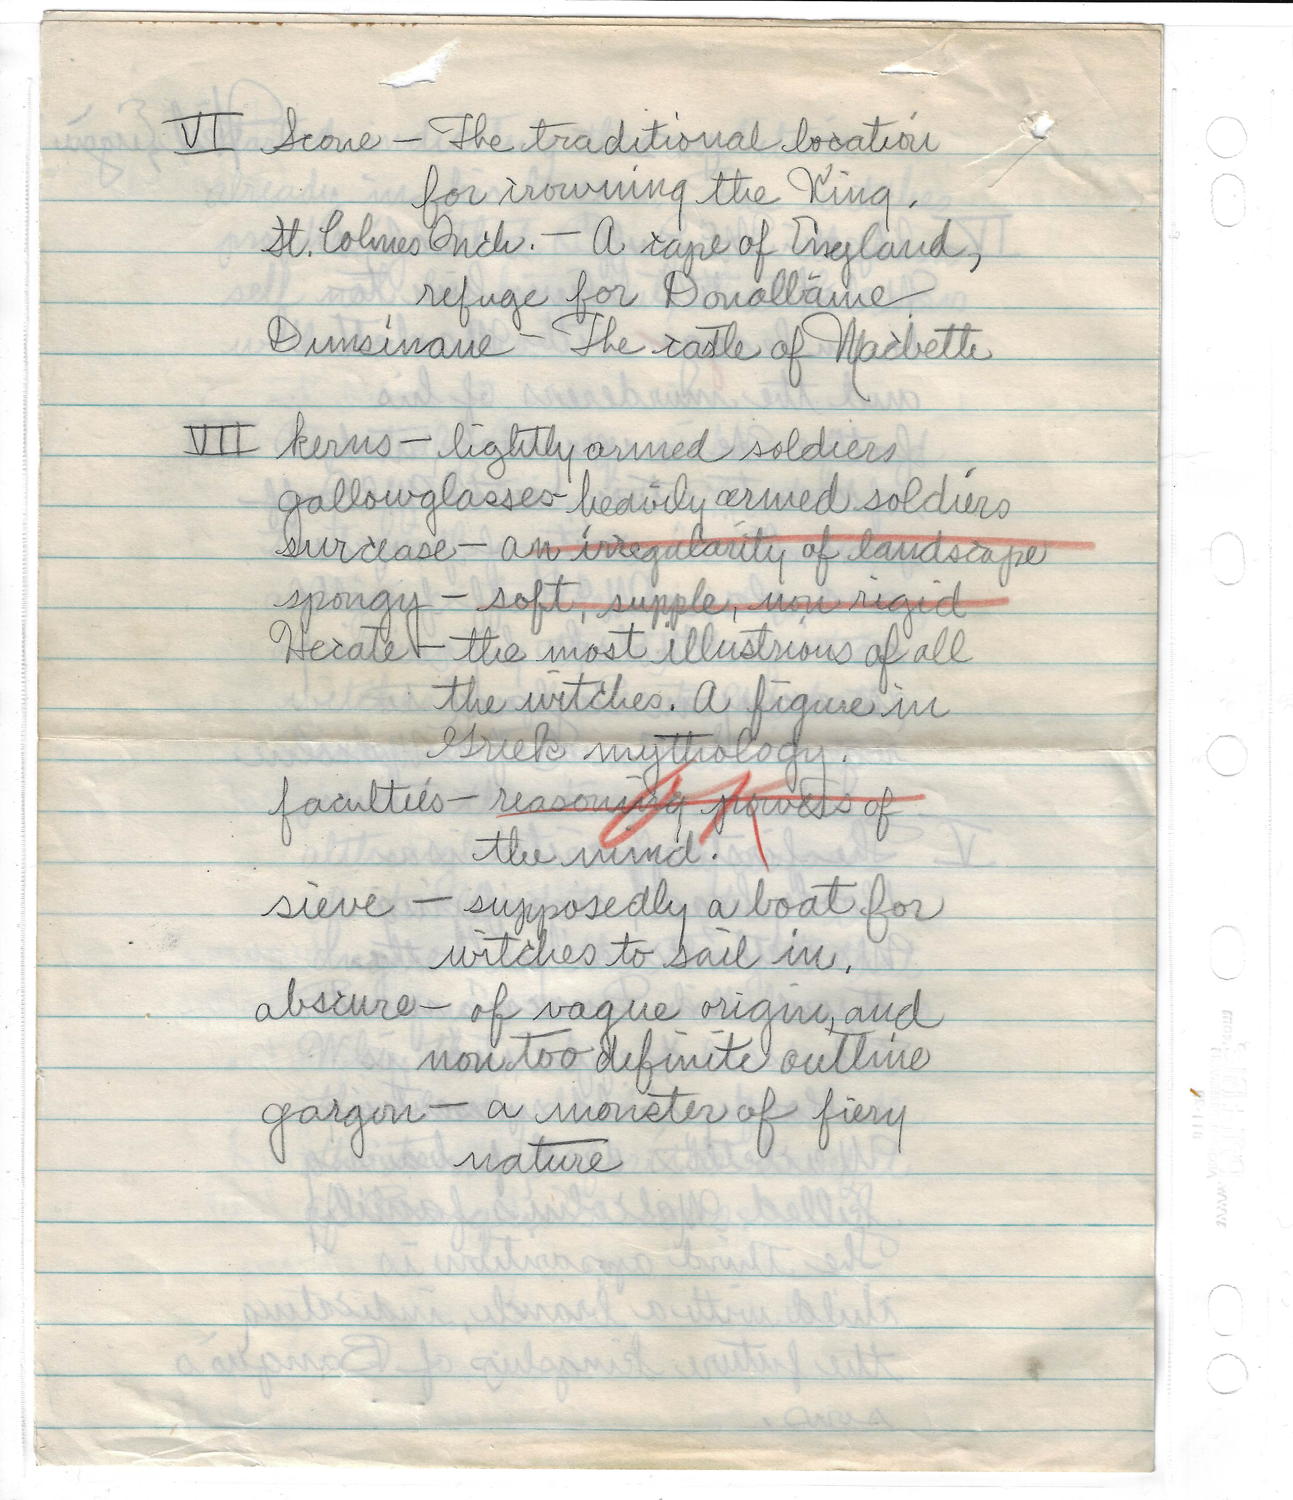 VI Scone — The traditional location
for crowning the King.
St. Colmes Inch. — A cape of England,
refuge for Donalbaine
Dunsinane — The castle of Macbeth
VII kerns — lightly armed soldiers
gallowglasses - heavily armed soldiers
surcease — an irregularity of landscape
spongy — soft, supple, non rigid
Hecate — the most illustrious of all
the witches. A figure in
Greek mythology.
faculties — reasoning powers of
OK
the mind.
sieve — supposedly a boat for
witches to sail in.
obscure — of vague origin, and
non too definite outline
gorgon — a monster of fiery
nature